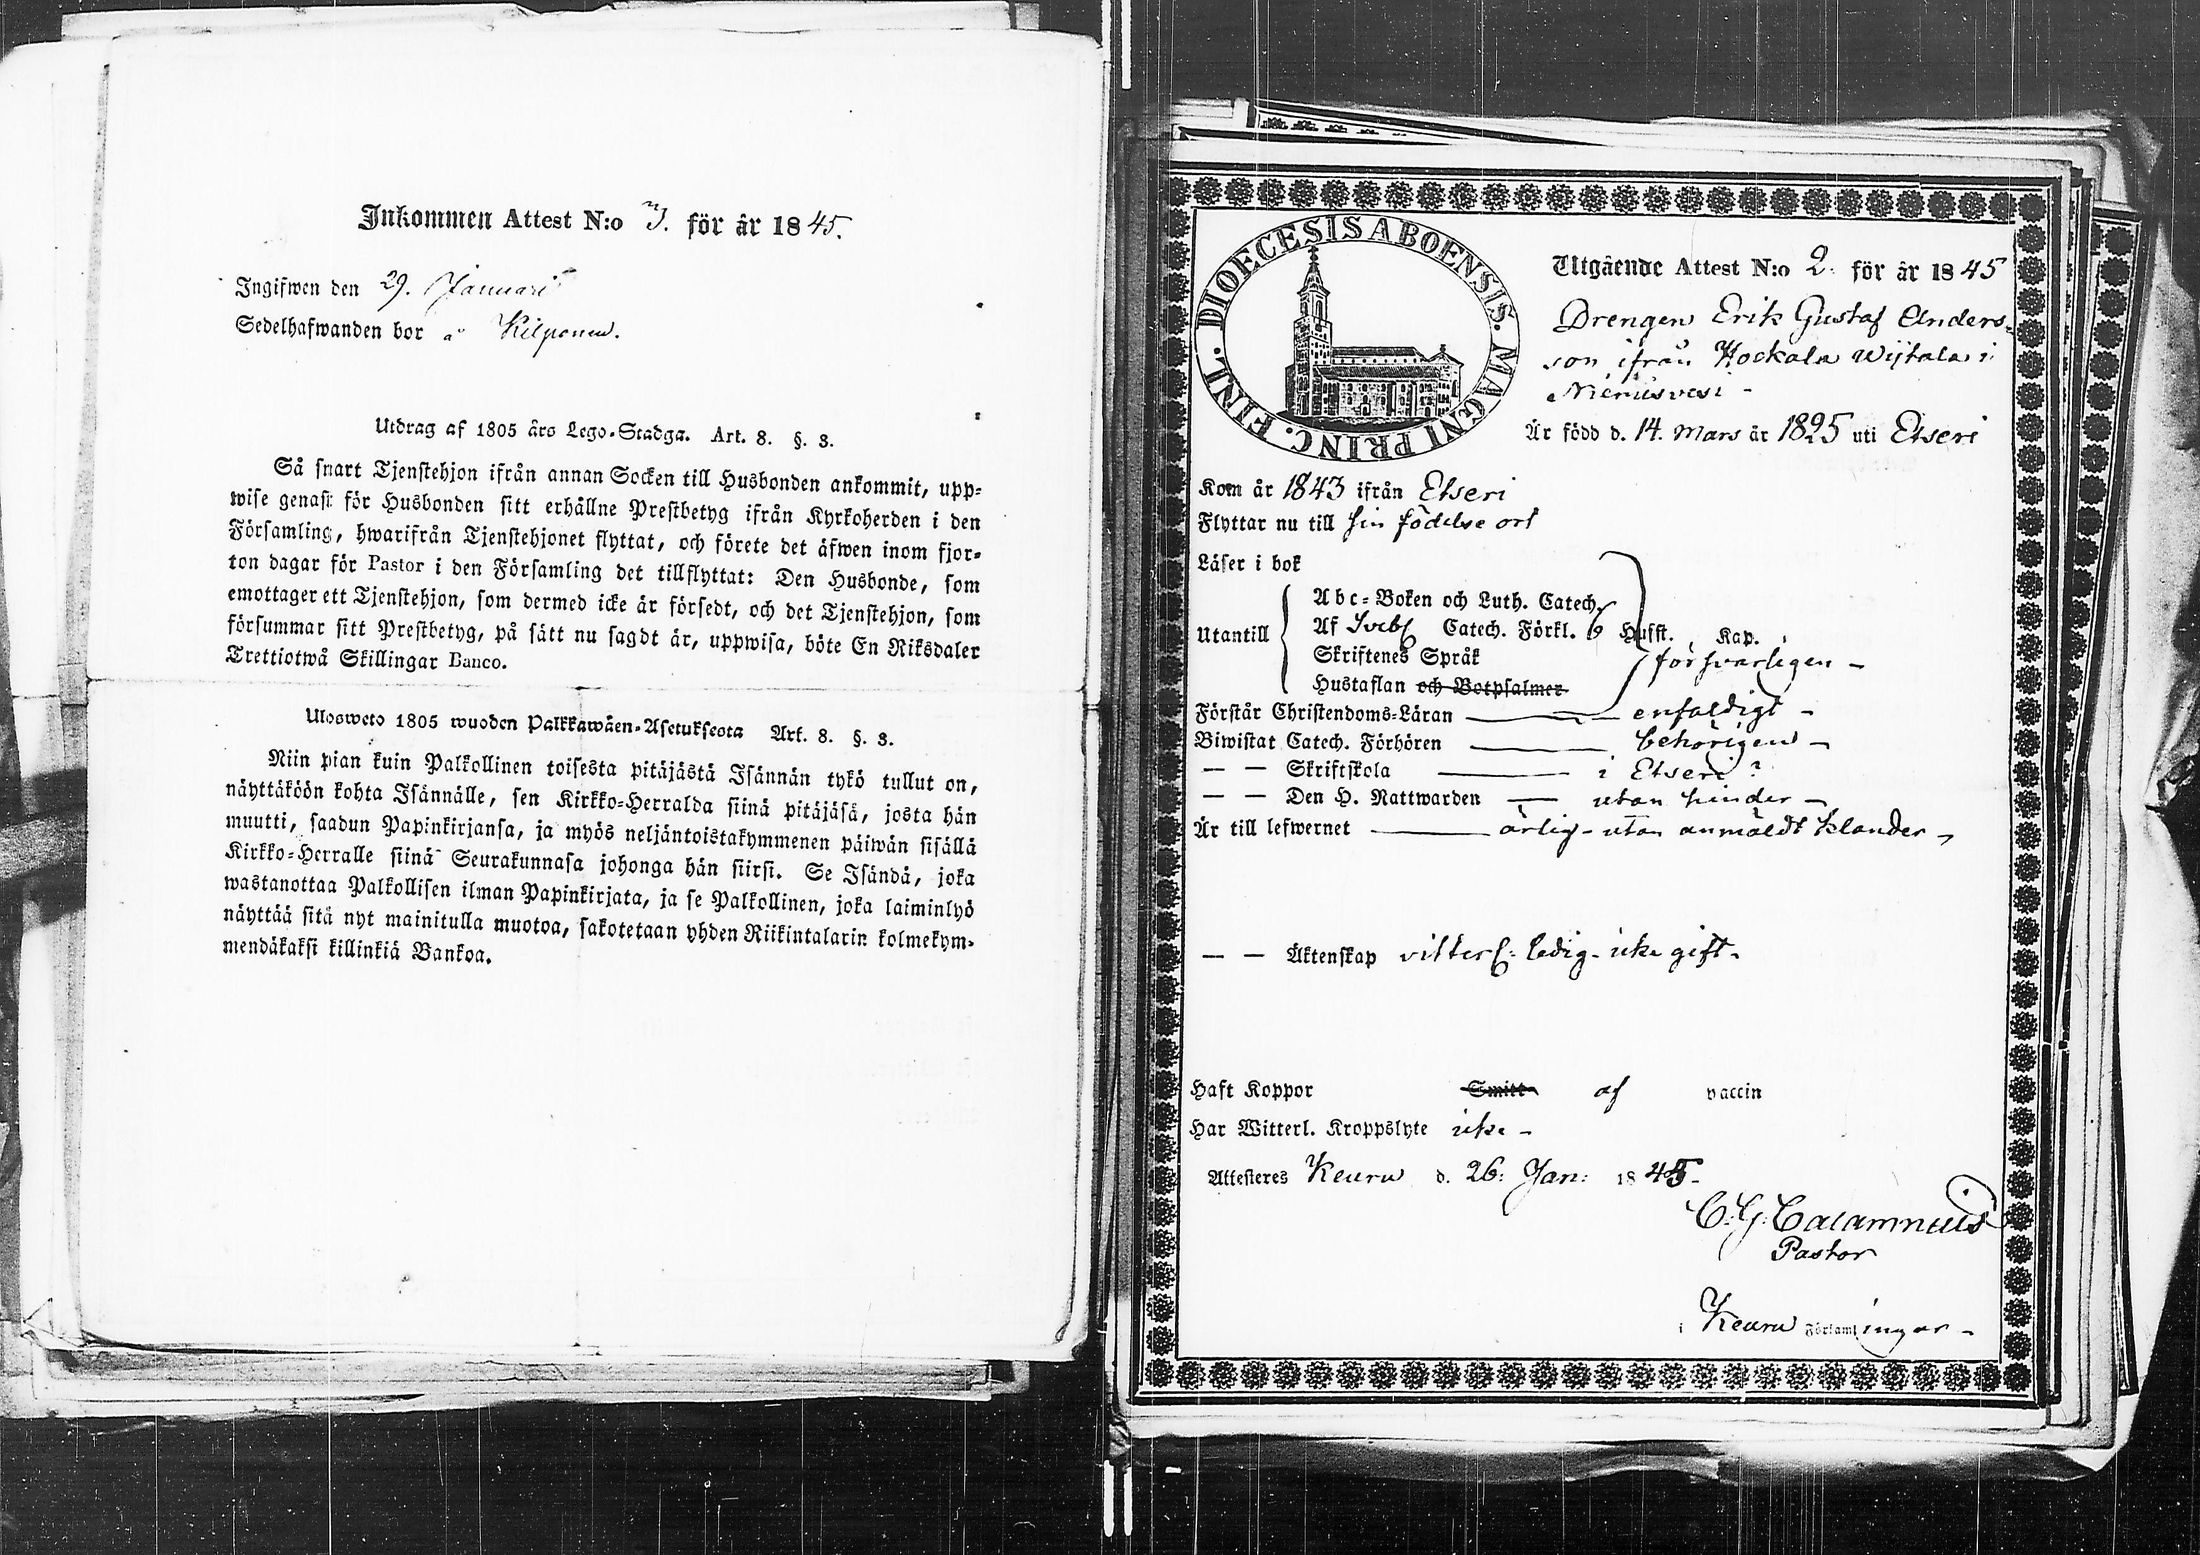 Inkommen Attest N:o 3. för år 1845.
Ingifwen den 29. Januari
Sedelhafwanden bor å Kilponen.
Utdrag af 1805 års Lego-Stadga. Art. 8. §. 3.
Så snart Tjenstehjon ifrån annan Socken till Husbonden ankommit, upp-
wise genast för Husbonden sitt erhållne Prestbetyg ifrån Kyrkoherden i den
Församling, hwarifrån Tjenstehjonet flyttat, och förete det äfwen inom fjor-
ton dagar för Pastor i den Församling det tillflyttat: Den Husbonde, som
emottager ett Tjenstehjon, som dermed icke är försedt, och det Tjenstehjon, som
försummar sitt Prestbetyg, på sätt nu sagdt är, uppwisa, böte En Riksdaler
Trettiotwå Skillingar Banco.
Ulosweto 1805 wuoden Palkkawäen-Asetuksesta Art. 8. §. 3.
Niin pian kuin Palkollinen toisesta pitäjästä Isännän tykö tullut on,
näyttäköön kohta Isännälle, sen Kirkko-Herralda siinä pitäjäsä, josta hän
muutti, saadun Papinkirjansa, ja myös neljäntoistakymmenen päiwän sisällä
Kirkko-Herralle siinä Seurakunnasa johonga hän siirsi. Se Isändä, joka
wastanottaa Palkollisen ilman Papinkirjata, ja se Palkollinen, joka laiminlyö
näyttää sitä nyt mainitulla muotoa, sakotetaan yhden Riikintalarin kolmekym-
mendäkaksi killinkiä Bankoa.
DIOECESIS ABOENSIS. MAGNI PRINC. FINL.
Utgående Attest N:o 2. för år 1845
Drengen Erik Gustaf Anders-
son ifrån Kockala Wijtala i
Niemisvesi -
Är född d. 14. Mars år 1825 uti Etseri
Kom år 1843 ifrån Etseri
Flyttar nu till sin födelse ort
Läser i bok
Utantill
Abc-Boken och Luth. Catech.
Af Sveb. Catech. Förkl. Husst. Kap.
Skriftenes Språk försvarligen -
Hustaflan och Botpsalmer
Förstår Christendoms-Läran enfaldigt -
Biwistat Catech. Förhören behörigen -
— — Skriftskola i Etseri?
— — Den H. Nattwarden utan hinder -
Är till lefwernet ärlig - utan anmäldt klander -
— — Äktenskap vitterl: ledig - icke gift -
Haft Koppor Smitt af vaccin
Har Witterl. Kroppslyte icke -
Attesteres Keuru d. 26. Jan: 1845 -
C. G. Calamnius
Pastor
i Keuru Församlingar -